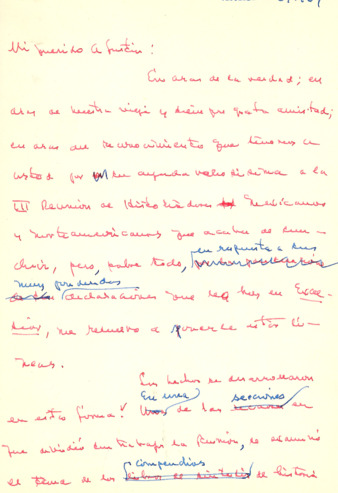 Mi querido Agustín:
En aras de la verdad; en
aras de nuestra vieja y siempre grata amistad;
en aras del reconocimiento que tenemos a
usted por su ayuda valiosísima a la
III Reunión de Historiadores Mexicanos
y Norteamericanos que acaba de con-
cluir, pero, sobre todo, en respuesta a sus
muy ponderadas
declaraciones que hoy hizo en Excel-
sior, me resuelvo a ponerle estas lí-
neas.
Los hechos se desarrollaron
en esta forma: En una de las secciones en
que dividió sus trabajos la Reunión, se examinó
el tema de los compendios de historia